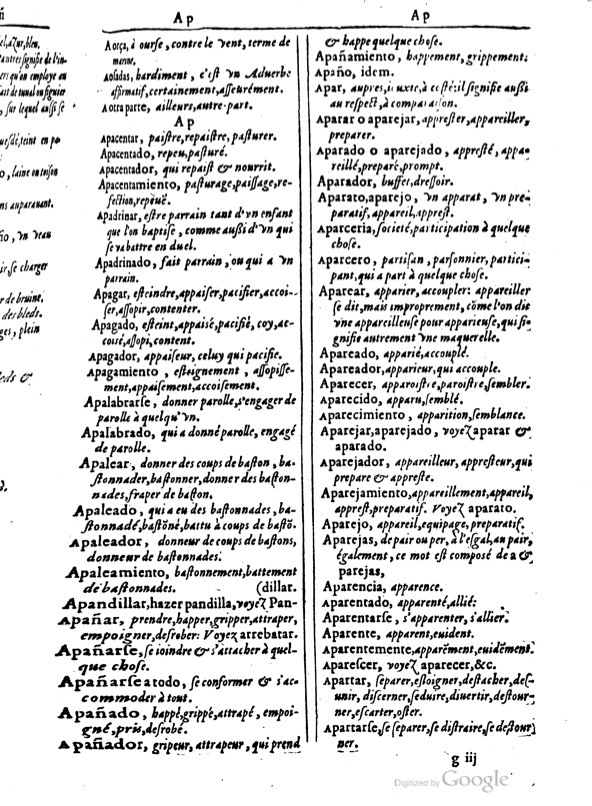 Ap
Ap
Aorça, à ourse, contre le vent, terme de
marine.
Aosadas, hardiment, c'est vn Aduerbe
affirmatif, certainement, asseurément.
Aotra parte, ailleurs, autre-part.
Ap
Apacentar, paistre, repaistre, pasturer.
Apacentado, repeu, pasturé.
Apacentador, qui repaist & nourrit.
Apacentamiento, pasturage, paissage, re-
fection, repeuë.
Apadrinar, estre parrain tant d'vn enfant
que l'on baptise, comme aussi d'vn qui
se va battre en duel.
Apadrinado, fait parrain, ou qui a vn
parrain.
Apagar, esteindre, appaiser, pacifier, accoi-
ser, assopir, contenter.
Apagado, esteint, appaisé, pacifié, coy, ac-
coisé, assopi, content.
Apagador, appaiseur, celuy qui pacifie.
Apagamiento, esteignement, assopisse-
ment, appaisement, accoisement.
Apalabrarse, donner parolle, s'engager de
parolle à quelqu'vn.
Apalabrado, qui a donné parolle, engagé
de parolle.
Apalear, donner des coups de baston, ba-
stonnader, bastonner, donner des baston-
nades, fraper de baston.
Apaleado, qui a eu des bastonnades, ba-
stonnadé, bastõné, battu à coups de bastõ.
Apaleador, donneur de coups de bastons,
donneur de bastonnades.
Apaleamiento, bastonnement, battement
de bastonnades. (dillar.
Apandillar, hazer pandilla, voyez Pan-
Apañar, prendre, happer, gripper, attraper,
empoigner, desrober: Voyez arrebatar.
Apañarse, se ioindre & s'attacher à quel-
que chose.
Apañarse a todo, se conformer & s'ac-
commoder à tout.
Apañado, happé, grippé, attrapé, empoi-
gné, pris, desrobé.
Apañador, gripeur, attrapeur, qui prend
& happe quelque chose.
Apañamiento, happement, grippement.
Apaño, idem.
Apar, aupres, iuxte, à costé: il signifie aussi
au respect, à comparaison.
Aparar o aparejar, apprester, appareiller,
preparer.
Aparado o aparejado, appresté, appa-
reillé, preparé, prompt.
Aparador, buffet, dressoir.
Aparato, aparejo, vn apparat, vn pre-
paratif, appareil, apprest.
Aparceria, societé, participation à quelque
chose.
Aparcero, partisan, parsonnier, partici-
pant, qui a part à quelque chose.
Aparear, apparier, accoupler: appareiller
se dit, mais improprement, cõme l'on dit
vne appareilleuse pour apparieuse, qui si-
gnifie autrement vne maquerelle.
Apareado, apparié, accouplé.
Apareador, apparieur, qui accouple.
Aparecer, apparoistre, paroistre, sembler.
Aparecido, apparu, semblé.
Aparecimiento, apparition, semblance.
Aparejar, aparejado, voyez aparar &
aparado.
Aparejador, appareilleur, appresteur, qui
prepare & appreste.
Aparejamiento, appareillement, appareil,
apprest, preparatif. Voyez aparato.
Aparejo, appareil, equipage, preparatif.
Aparejas, de pair ou per, à l'esgal, au pair,
également, ce mot est composé de a &
parejas,
Aparencia, apparence.
Aparentado, apparenté, allié:
Aparentarse, s'apparenter, s'allier.
Aparente, apparent, euident.
Aparentemente, apparément, euidẽment.
Aparescer, voyez aparecer, &c.
Apartar, separer, esloigner, destacher, des-
unir, discerner, seduire, diuertir, destour-
ner, escarter, oster.
Apartarse, se separer, se distraire, se destour
ner.
g iij
Digitized by Google